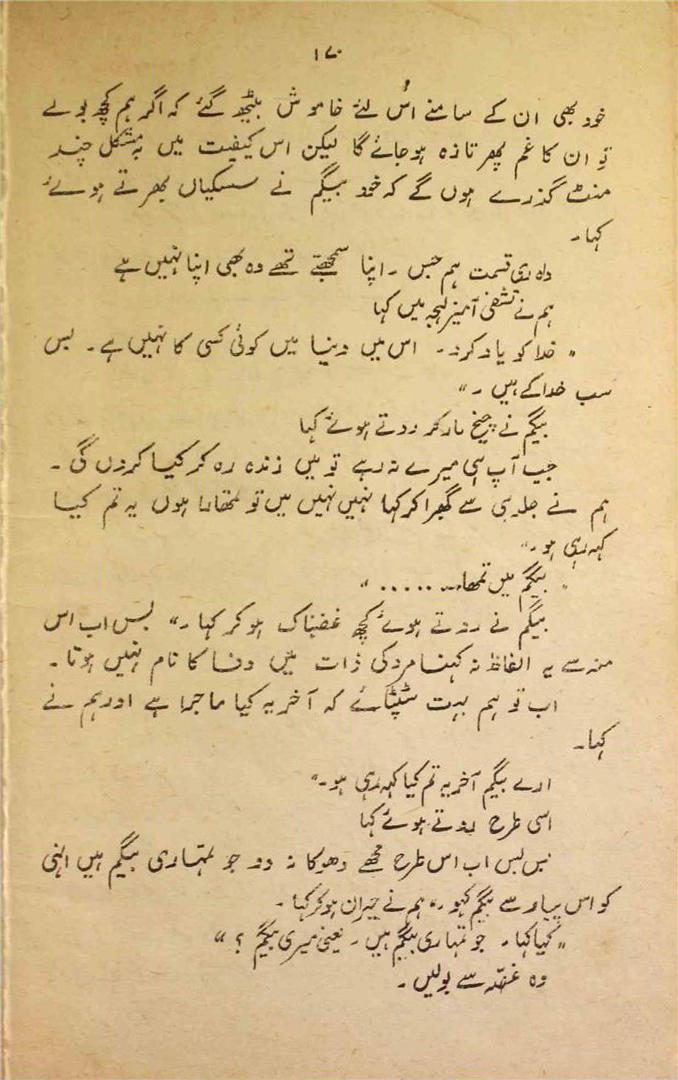 ۱۷
خود بھی ان کے سامنے اس لئے خاموش بیٹھ گئے کہ اگر ہم کچھ بولے
تو ان کا غم پھر تازہ ہو جائے گا لیکن اس کیفیت میں بمشکل چند
منٹ گذرے ہوں گے کہ خود بیگم نے سسکیاں بھرتے ہوئے
کہا۔
واہ ری قسمت ہم جس۔ اپنا سمجھتے تھے وہ بھی اپنا نہیں ہے
ہم نے تشفی آمیز لہجہ میں کہا
" خدا کو یاد کرو۔ اس میں دنیا میں کوئی کسی کا نہیں ہے۔ بس
سب خدا کے ہیں۔"
بیگم نے چیخ مار کر روتے ہوئے کہا
جب آپ ہی میرے نہ رہے تو میں زندہ رہ کر کیا کروں گی۔
ہم نے جلدی سے گھبرا کر کہا نہیں نہیں میں تو تمھارا ہوں یہ تم کیا
کہہ رہی ہو۔"
" بیگم میں تمھا ....... "
بیگم نے روتے ہوئے کچھ غضبناک ہو کر کہا۔" بس اب اس
منہ سے یہ الفاظ نہ کہنا مرد کی ذات میں وفا کا نام نہیں ہوتا۔
اب تو ہم بہت سٹپٹائے کہ آخر یہ کیا ماجرا ہے اور ہم نے
کہا۔
ارے بیگم آخر یہ تم کیا کہہ رہی ہو۔"
اسی طرح روتے ہوئے کہا
بس بس اب اس طرح مجھے دھوکا نہ دو جو تمہاری بیگم ہیں انہی
کو اس پیار سے بیگم کہو۔" ہم نے حیران ہو کر کہا۔
" کیا کہا۔ جو تمہاری بیگم ہیں۔ یعنی میری بیگم ؟ "
وہ غصّہ سے بولیں۔